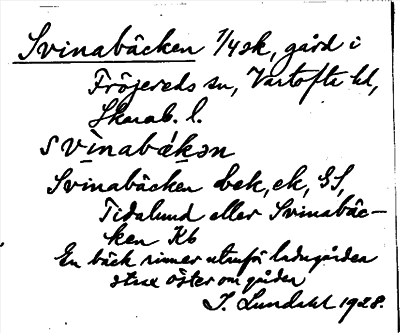 Svinabäcken 1/4 sk, gård i
Fröjereds sn, Vartofta hd,
Skarab. l.
svìnabǽkən
Svinabäcken bek, ek, GS,
Tidalund eller Svinabäc-
ken Kb
En bäck rinner utmed ladugården
strax öster om gården
J. Lundahl 1928.